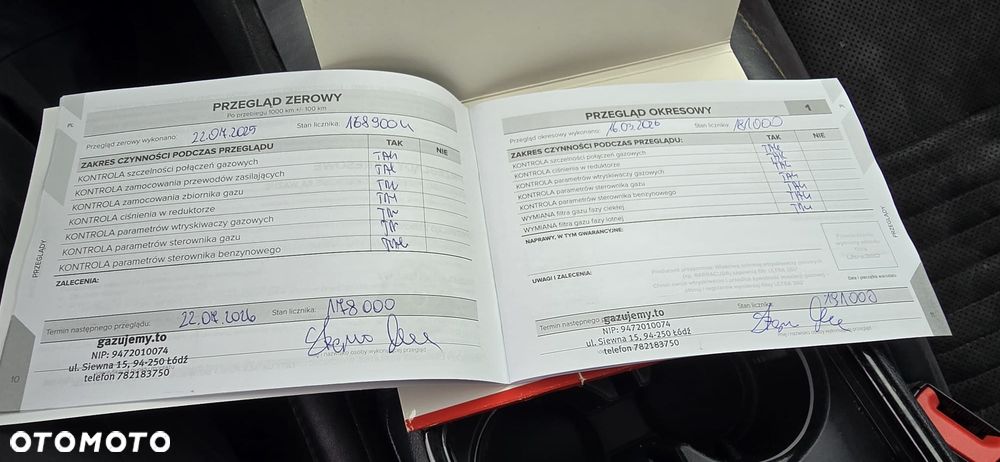 PRZEGLĄD ZEROWY
Po przebiegu 1000 km +/- 100 km
Przegląd zerowy wykonano: 22.07.2025 Stan licznika: 168900
ZAKRES CZYNNOŚCI PODCZAS PRZEGLĄDU TAK NIE
KONTROLA szczelności połączeń gazowych TAK
KONTROLA zamocowania przewodów zasilających TAK
KONTROLA zamocowania zbiornika gazu TAK
KONTROLA ciśnienia w reduktorze TAK
KONTROLA parametrów wtryskiwaczy gazowych TAK
KONTROLA parametrów sterownika gazu TAK
KONTROLA parametrów sterownika benzynowego TAK
ZALECENIA:
Termin następnego przeglądu: 22.07.2026 Stan licznika: 178000
gazujemy.to
NIP: 9472010074
ul. Siewna 15, 94-250 Łódź
telefon 782183750
nazwisko osoby wykonującej przegląd
10
PRZEGLĄDY
PRZEGLĄD OKRESOWY 1
Przegląd okresowy wykonano: 16.03.2026 Stan licznika: 181000
ZAKRES CZYNNOŚCI PODCZAS PRZEGLĄDU: TAK NIE
KONTROLA szczelności połączeń gazowych TAK
KONTROLA ciśnienia w reduktorze TAK
KONTROLA parametrów wtryskiwaczy gazowych TAK
KONTROLA parametrów sterownika gazu TAK
KONTROLA parametrów sterownika benzynowego TAK
WYMIANA filtra gazu fazy ciekłej TAK
WYMIANA filtra gazu fazy lotnej TAK
NAPRAWY, W TYM GWARANCYJNE:
UWAGI I ZALECENIA:
Data i pieczątka warsztatu
Termin następnego Stan licznika: 191000
gazujemy.to
NIP: 9472010074
ul. Siewna 15, 94-250 Łódź
telefon 782183750
11
PRZEGLĄDY
OTOMOTO